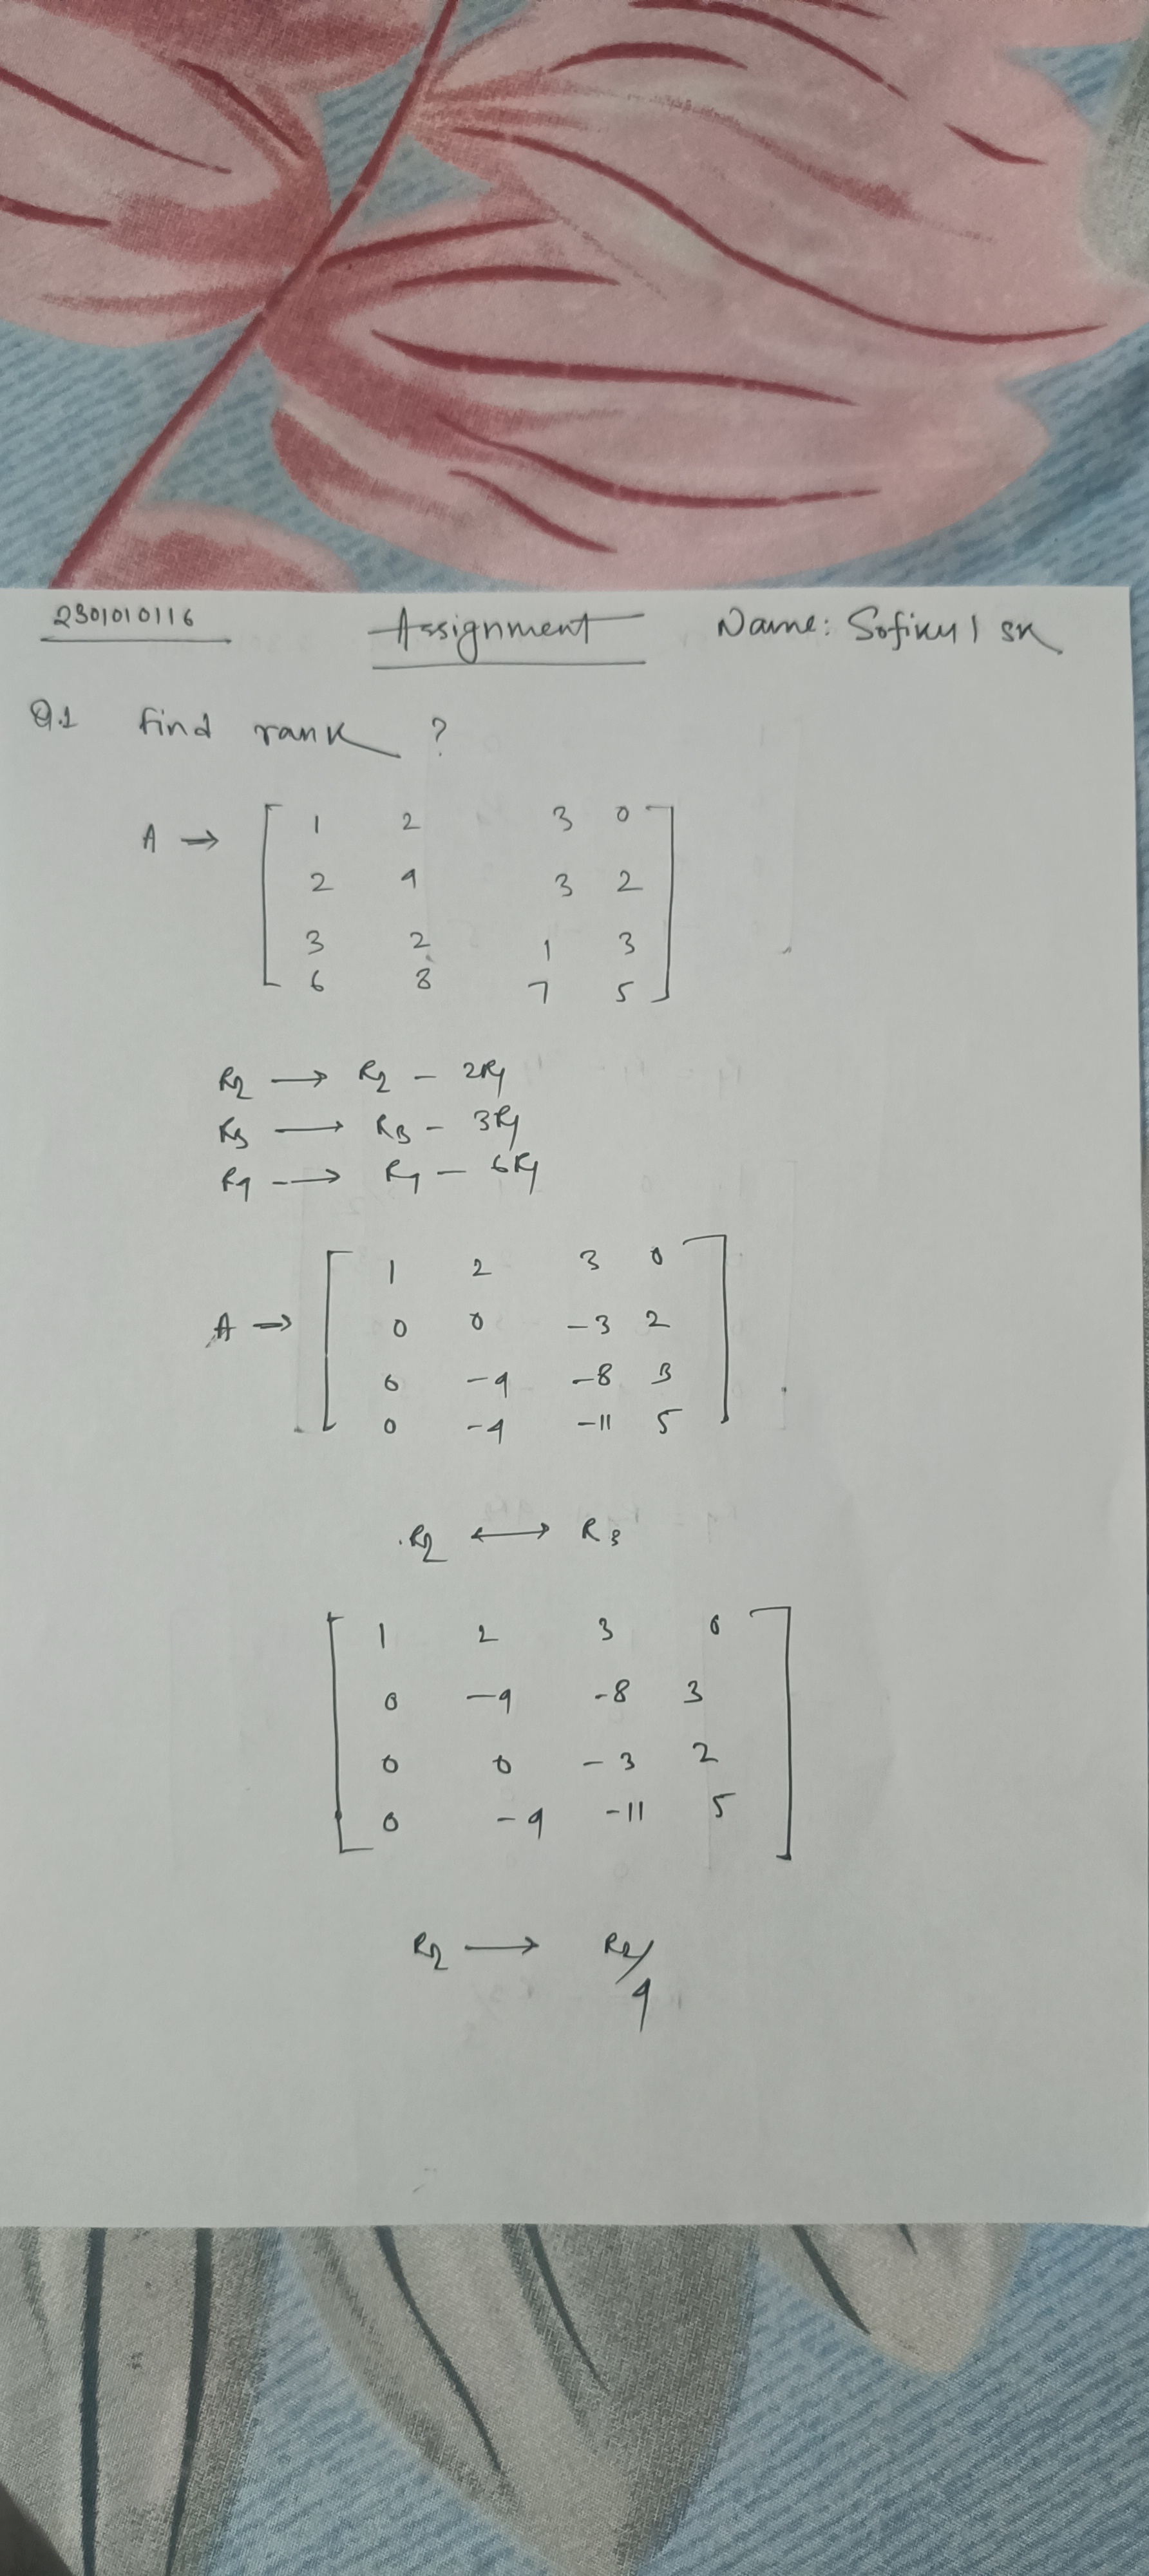 2301010116 Assignment Name: Sofikul SK
Q.1 find rank ?
A → [ 1 2 3 0
2 4 3 2
3 2 1 3
6 8 7 5 ]
R2 → R2 - 2R1
R3 → R3 - 3R1
R4 → R4 - 6R1
A → [ 1 2 3 0
0 0 -3 2
0 -4 -8 3
0 -4 -11 5 ]
R2 ↔ R3
[ 1 2 3 0
0 -4 -8 3
0 0 -3 2
0 -4 -11 5 ]
R2 → R2/4